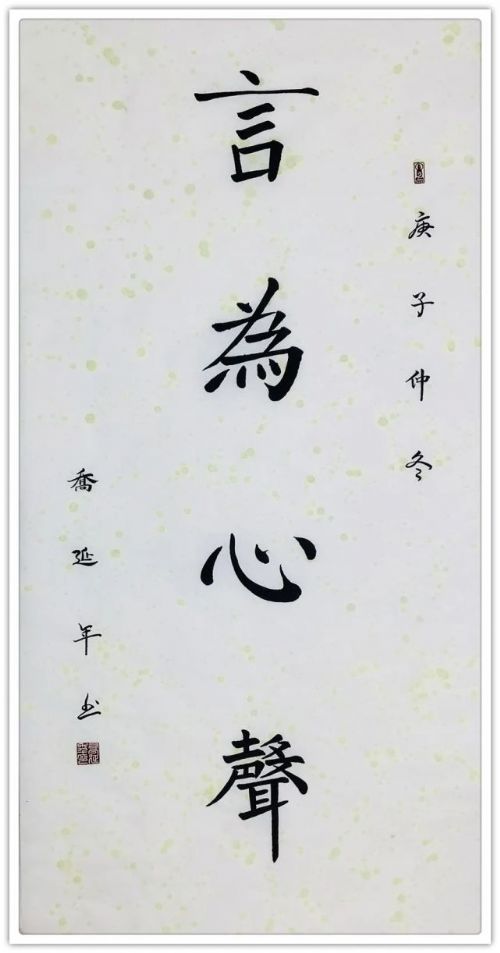 庚子仲冬
言為心聲
喬延年书